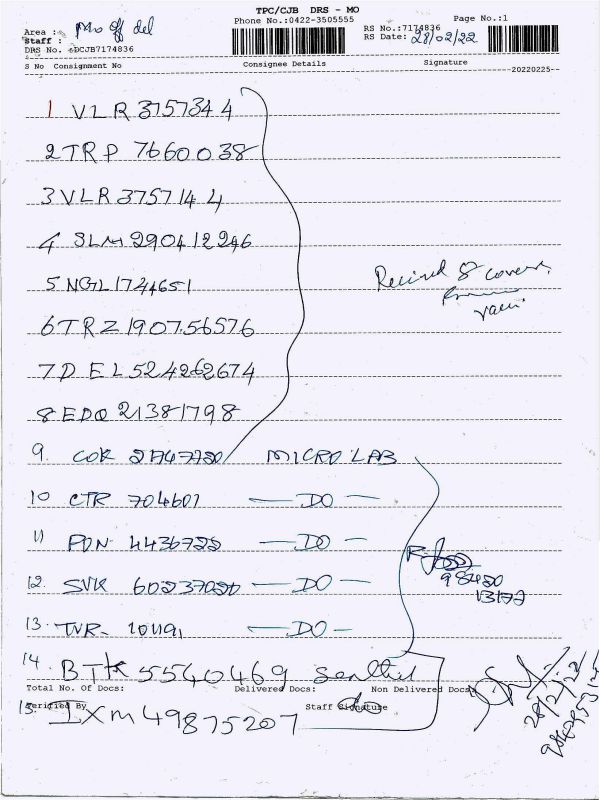 TPC/CJB DRS - MO
Phone No.:0422-3505555
Page No.:1
Area :
Staff :
RS No.:7174836
RS Date: 28/02/22
DRS No. CJB7174836
S No Consignment No Consignee Details Signature
20220225
1 VLR 3757344
2 TRP 7660038
3 VLR 3757144
4 SLM 290412246
5 NGL 1724651
Received 8 covers
6 TRZ 190756576
7 DEL 524262674
8 EDQ 21381798
9. COK 21747720 MICRO LAB
10 CTR 704601 — DO —
11 PDN 4436722 — DO —
12. SVK 602237020 — DO —
13. TVR 101191 — DO —
14. BTK 5540469 Senthil
Total No. Of Docs: Delivered Docs: Non Delivered Docs:
Verified By Staff Signature
15. IXM 49875207 do
28/2/22